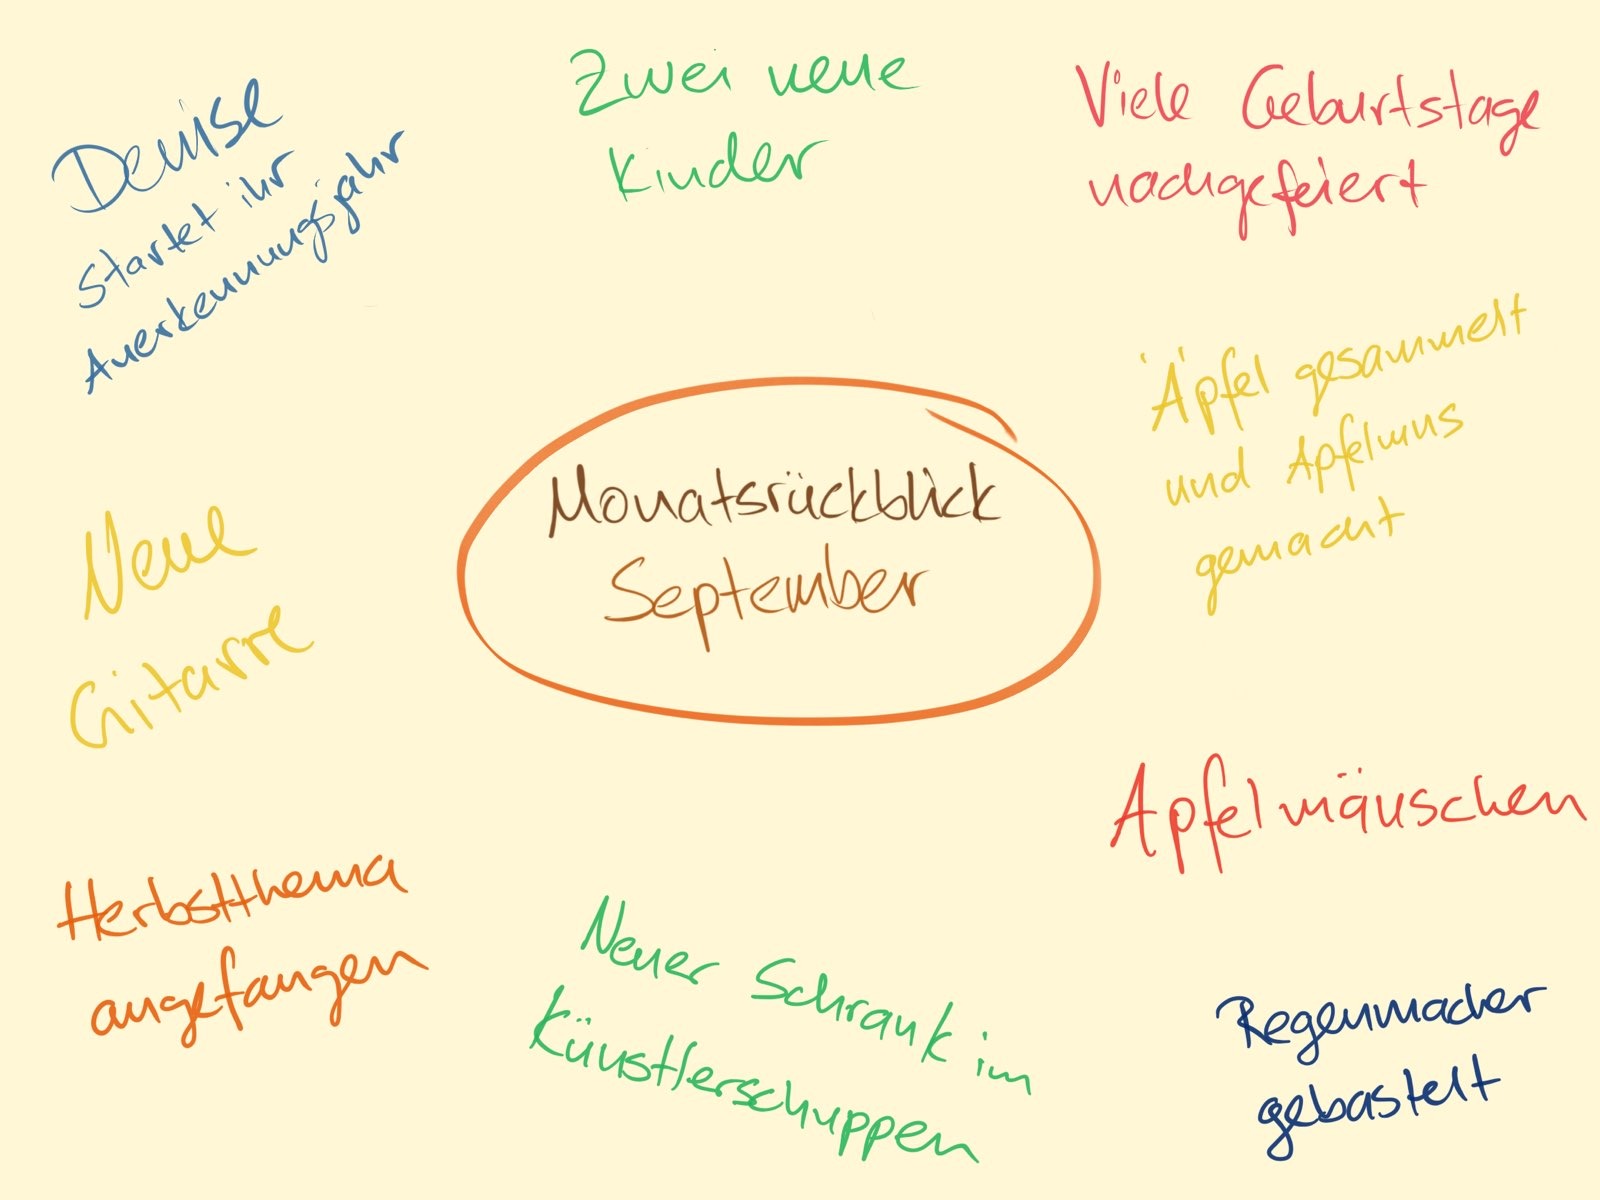 Denise
startet ihr
Anerkennungsjahr
Zwei neue
Kinder
Viele Geburtstage
nachgefeiert
Äpfel gesammelt
und Apfelmus
gemacht
Monatsrückblick
September
Neue
Gitarre
Apfelmäuschen
Herbstthema
angefangen
Neuer Schrank im
Künstlerschuppen
Regenmacher
gebastelt